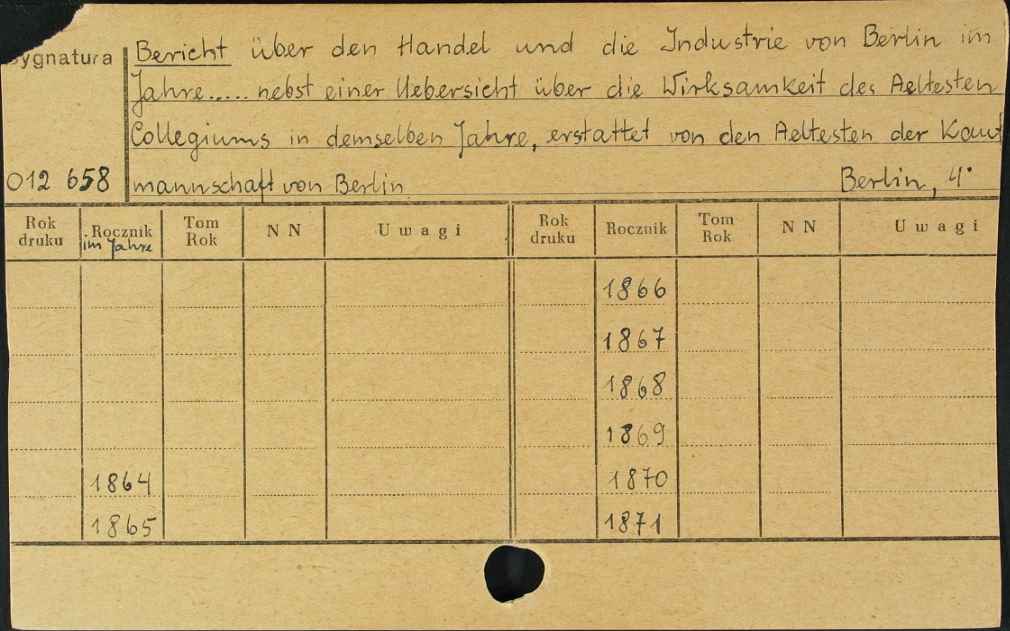 Sygnatura
Bericht über den Handel und die Industrie von Berlin im
Jahre..... nebst einer Uebersicht über die Wirksamkeit des Aeltesten
Collegiums in demselben Jahre, erstattet von den Aeltesten der Kauf
012 658 mannschaft von Berlin Berlin, 4°
Rok druku Rocznik im Jahre Tom Rok N N Uwagi Rok druku Rocznik Tom Rok N N Uwagi
1866
1867
1868
1869
1864 1870
1865 1871